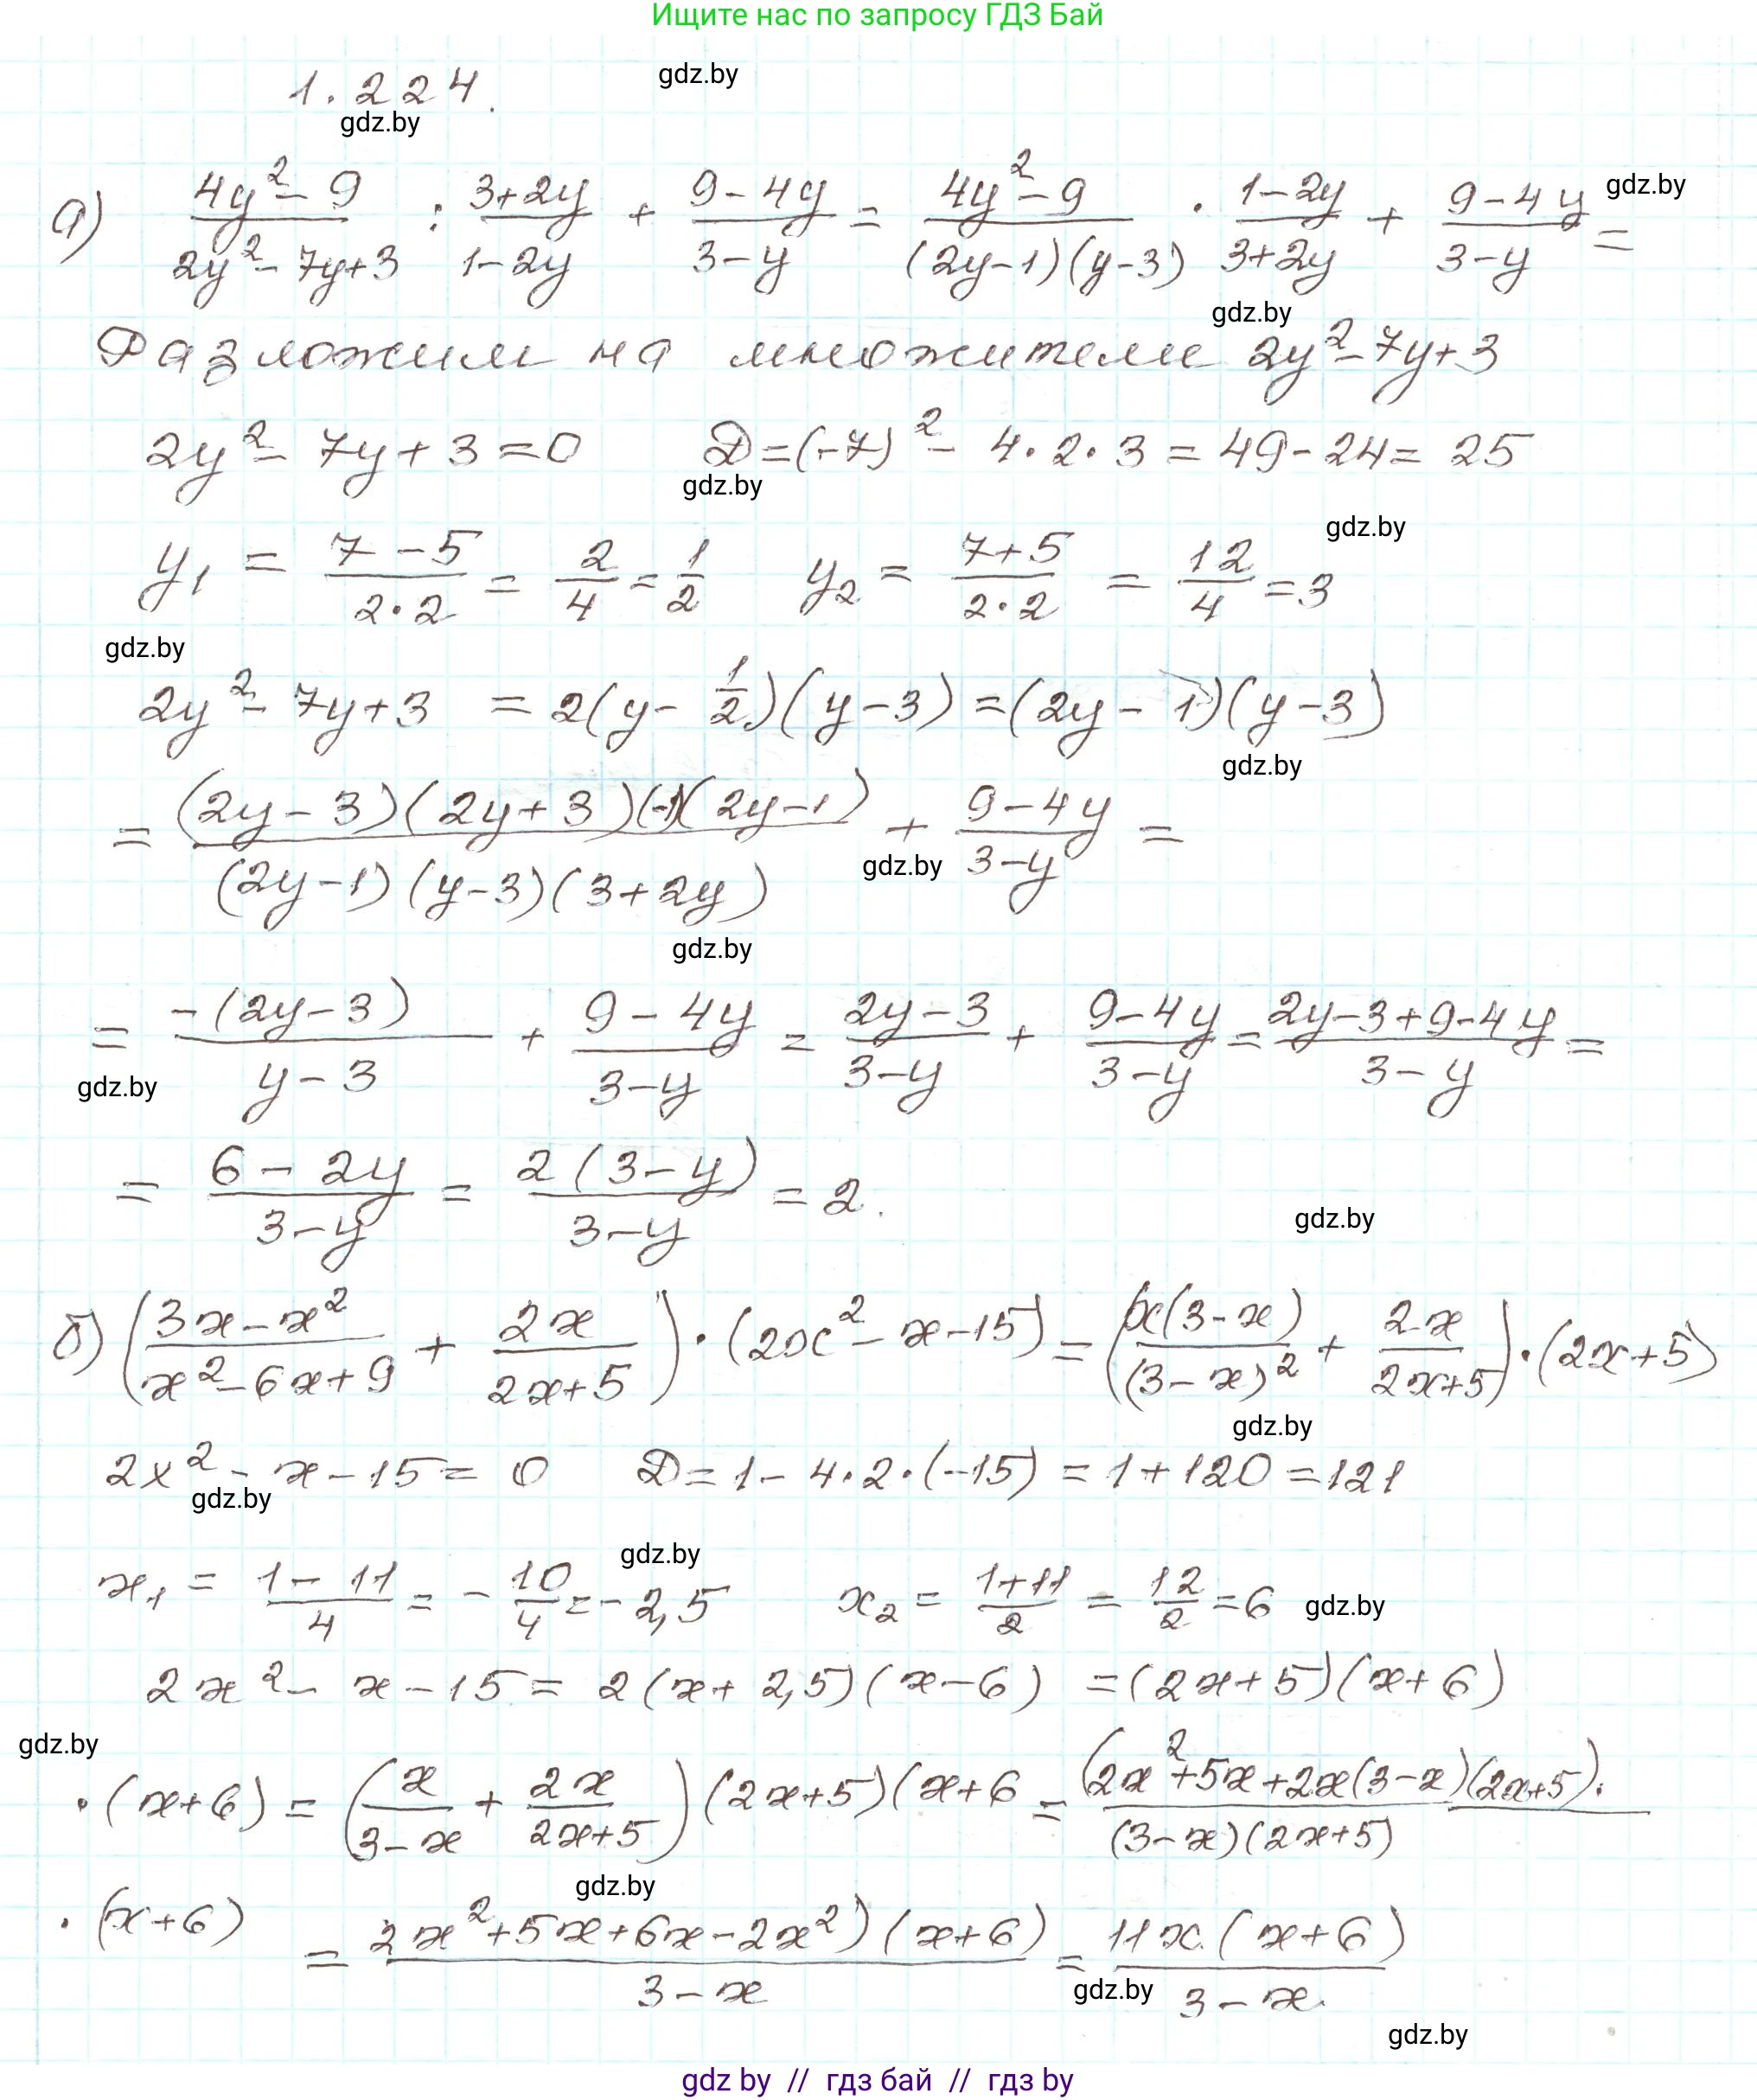 Ищите нас по запросу ГДЗ Бай
1.224.
gdz.by
gdz.by
а) (4y² - 9)/(2y² - 7y + 3) : (3 + 2y)/(1 - 2y) + (9 - 4y)/(3 - y) = (4y² - 9)/((2y - 1)(y - 3)) · (1 - 2y)/(3 + 2y) + (9 - 4y)/(3 - y) =
gdz.by
gdz.by
Разложим на множители 2y² - 7y + 3
2y² - 7y + 3 = 0 D = (-7)² - 4·2·3 = 49 - 24 = 25
gdz.by
gdz.by
y₁ = (7 - 5)/(2·2) = 2/4 = 1/2 y₂ = (7 + 5)/(2·2) = 12/4 = 3
gdz.by
2y² - 7y + 3 = 2(y - 1/2)(y - 3) = (2y - 1)(y - 3)
gdz.by
= ((2y - 3)(2y + 3)(-1)(2y - 1))/((2y - 1)(y - 3)(3 + 2y)) + (9 - 4y)/(3 - y) =
gdz.by
gdz.by
= (-(2y - 3))/(y - 3) + (9 - 4y)/(3 - y) = (2y - 3)/(3 - y) + (9 - 4y)/(3 - y) = (2y - 3 + 9 - 4y)/(3 - y) =
gdz.by
= (6 - 2y)/(3 - y) = (2(3 - y))/(3 - y) = 2.
gdz.by
б) ((3x - x²)/(x² - 6x + 9) + 2x/(2x + 5)) · (2x² - x - 15) = (x(3 - x)/(3 - x)² + 2x/(2x + 5)) · (2x + 5)
gdz.by
2x² - x - 15 = 0 D = 1 - 4·2·(-15) = 1 + 120 = 121
gdz.by
gdz.by
x₁ = (1 - 11)/4 = -10/4 = -2,5 x₂ = (1 + 11)/2 = 12/2 = 6 gdz.by
2x² - x - 15 = 2(x + 2,5)(x - 6) = (2x + 5)(x + 6)
gdz.by
· (x + 6) = (x/(3 - x) + 2x/(2x + 5))(2x + 5)(x + 6 = ((2x² + 5x + 2x(3 - x)(2x + 5)·)/((3 - x)(2x + 5))
gdz.by
· (x + 6) = (2x² + 5x + 6x - 2x²)(x + 6)/(3 - x) = 11x(x + 6)/(3 - x)
gdz.by
gdz.by
gdz by // гдз бай // гдз by